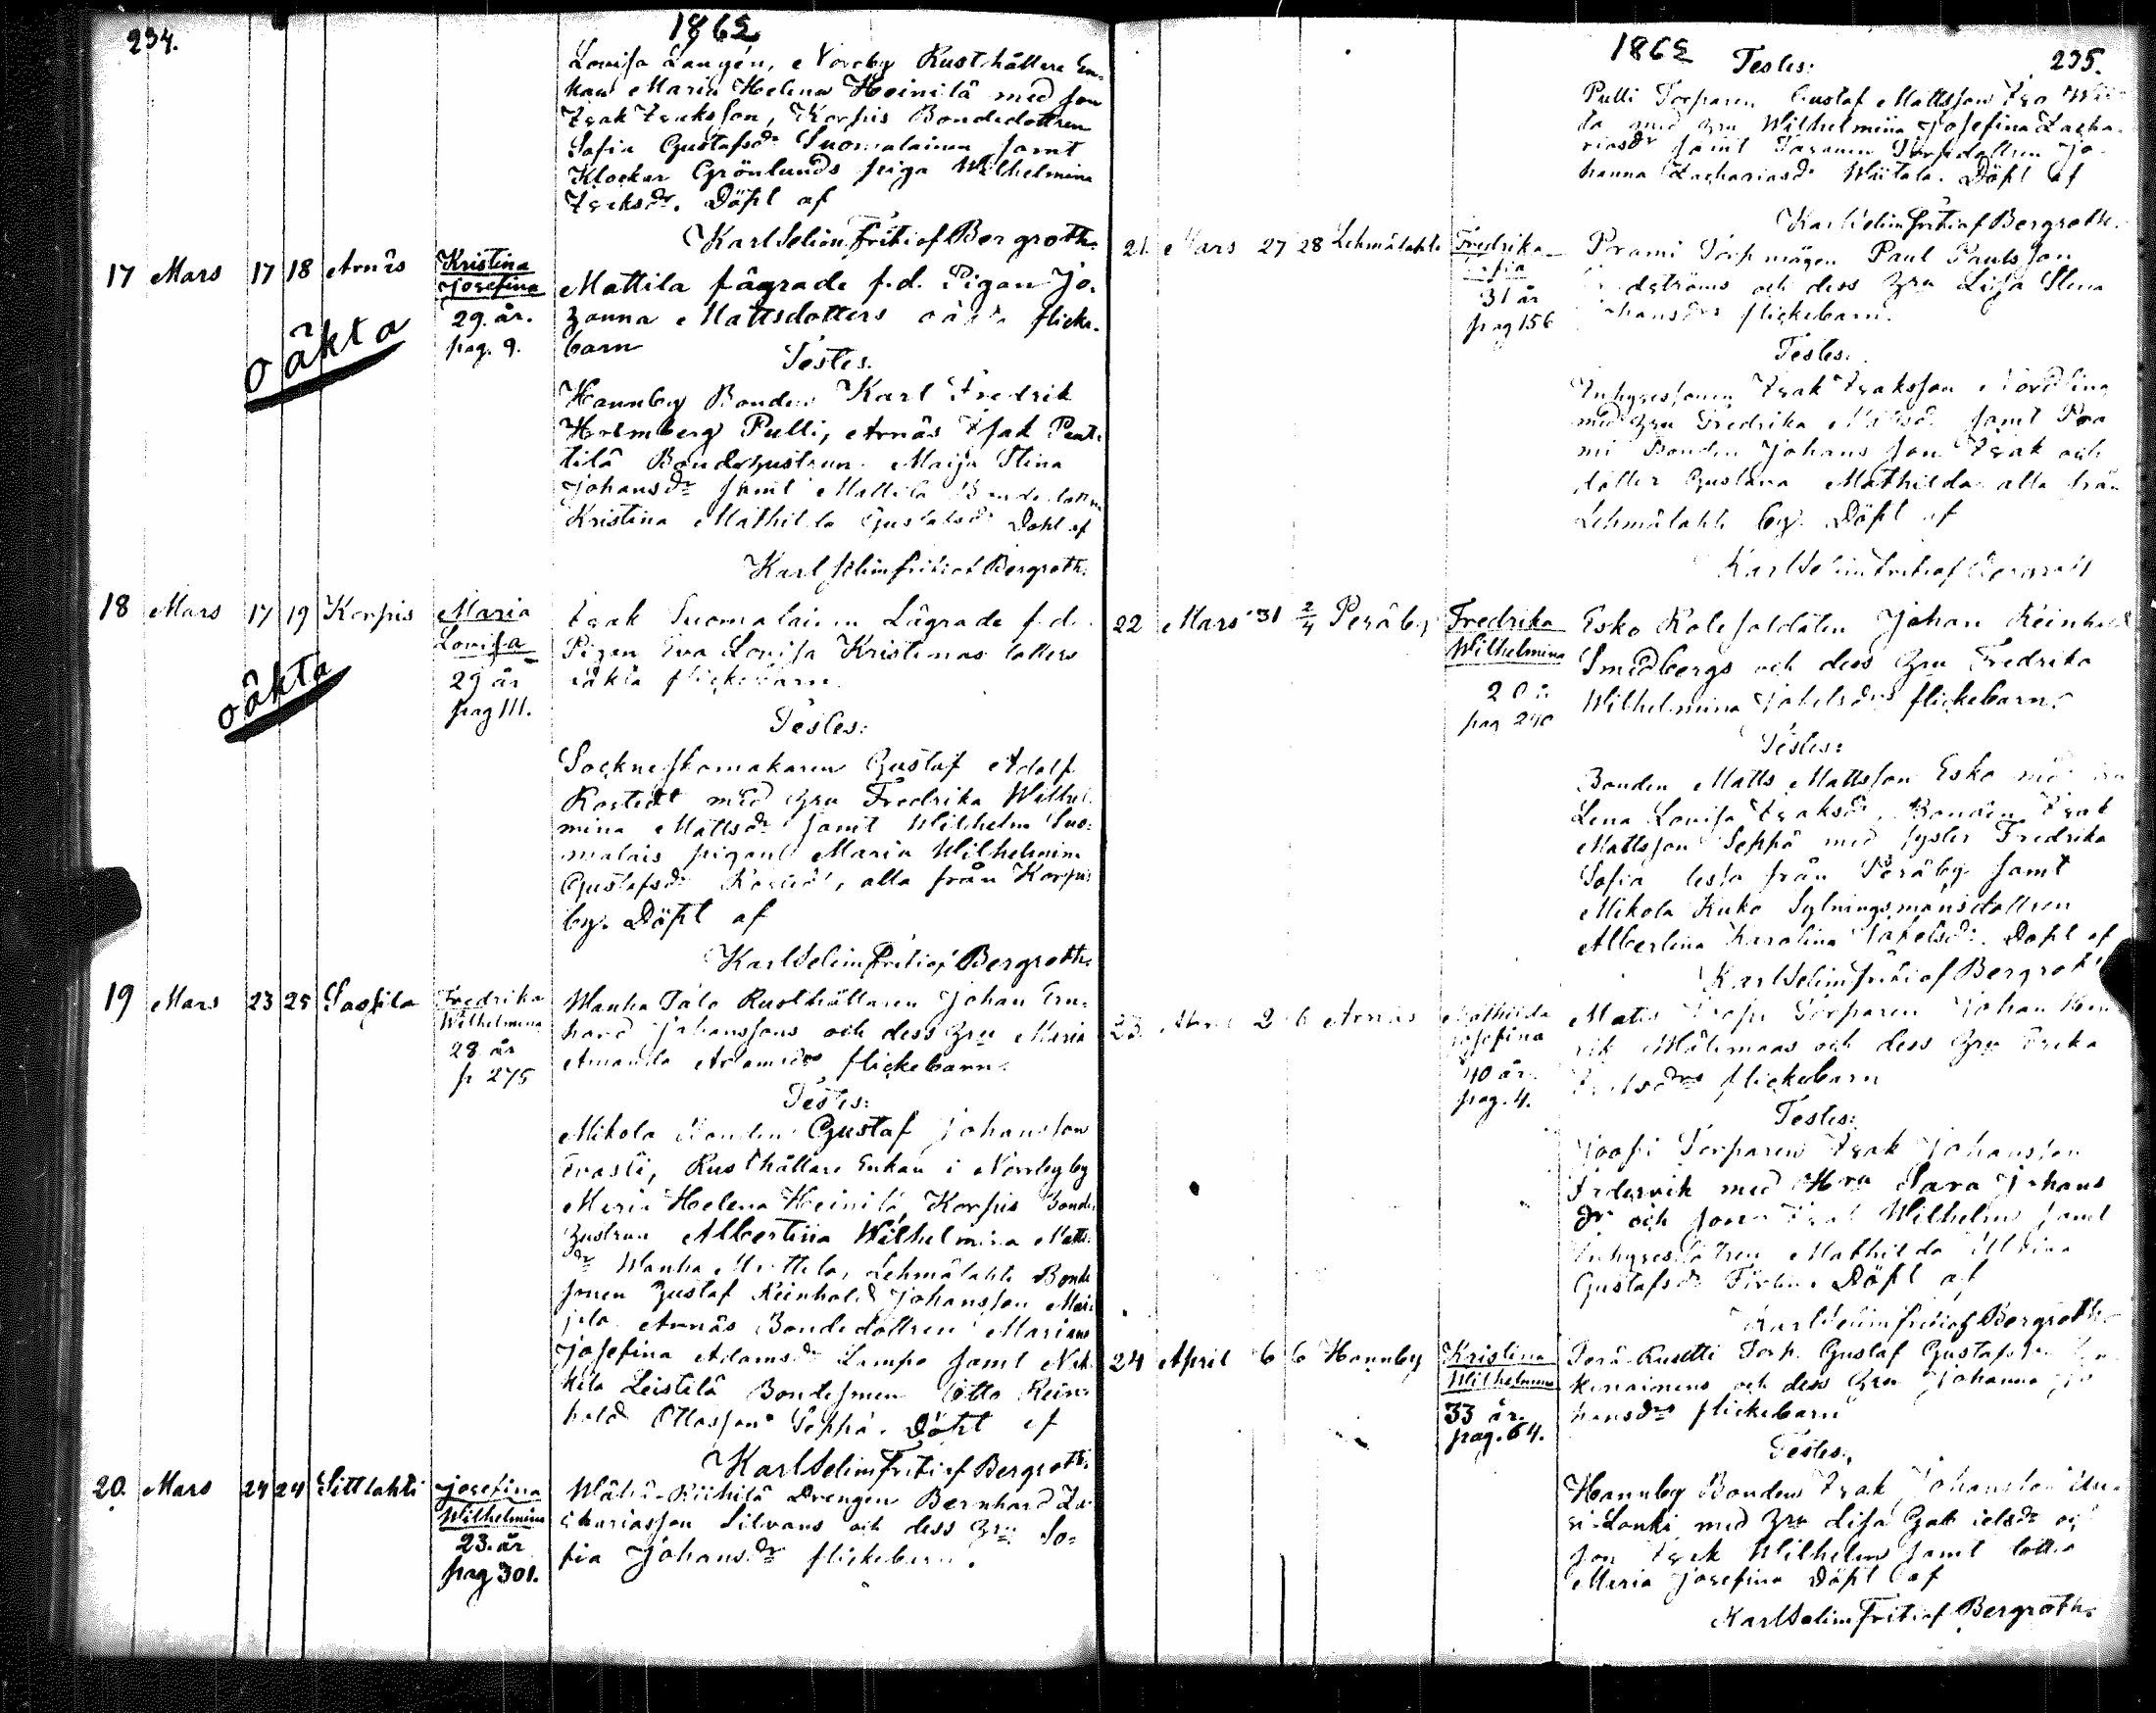 234.
1862
Lovisa Langén, Norrby Rusthållare En-
kan Maria Helena Heinilä med son
Isak Isaksson, Korpis Bondedottren
Sofia Gustafsdr Suomalainen samt
Klockar Grönlunds piga Wilhelmina
Isaksdr. Döpt af
Karl Selim Fritiof Bergroth.
17 Mars 17 18 Arnäs Kristina
Josefina
29. år.
pag. 9.
oäkta
Mattila lägrade f.d. Pigan Jo-
hanna Mattsdotters oäkta flicke-
barn
Testes.
Hannby Bonden Karl Fredrik
Holmberg Pulli, Arnäs Isak Pent-
tilä Bondehustrun Maija Stina
Johansdr samt Mattila Bondedottren
Kristina Mathilda Gustafsdr Döpt af
Karl Selim Fritiof Bergroth.
18 Mars 17 19 Korpis Maria
Lovisa
29 år
pag 111.
oäkta
Isak Suomalainen Lägrade f.d.
Pigan Eva Lovisa Kristinas dotters
oäkta flickebarn.
Testes:
Sockneskomakaren Gustaf Adolf
Rostedt med hru Fredrika Wilhel-
mina Mattsdr samt Wilhelm Suo-
malais pigan Maria Wilhelmina
Gustafsdr, alla från Korpis
by. Döpt af
Karl Selim Fritiof Bergroth.
19 Mars 23 25 Sassila Fredrika
Wilhelmina
28 år
p 275
Wanha Talo Rusthållaren Johan Ern-
hard Johanssons och dess hru Maria
Amanda Adamsdrs flickebarn.
Testes:
Mikola Bonden Gustaf Johansson
Evasti, Rusthållare Enkan i Norrby by
Maria Helena Heinilä, Korpis Bonde
hustrun Albertina Wilhelmina Matts-
dr Wanha Mattila, Lehmälahti Bonde
sonen Gustaf Reinhold Johansson Mai-
jala Arnäs Bondedottren Mariana
Josefina Adamsdr Lampo samt
Leistilä Bondesonen Otto Rein-
hold Ottosson Seppä. Döpt af
Karl Selim Fritiof Bergroth.
20. Mars 24 24 Sittlahti Josefina
Wilhelmina
23. år
pag 301.
Wähä-Riihilä Drengen Bernhard Za-
chariasson Silvans och dess hru So-
fia Johansdr flickebarn.
1862
235.
Testes:
Pulli Torparen Gustaf Mattsson
med hru Wilhelmina Josefina Zacha-
riasdr samt Torpdottren Jo-
hanna Zachariasdr Wiitala. Döpt af
Karl Selim Fritiof Bergroth.
21. Mars 27 28 Lehmälahti Fredrika
Sofia
31 år
pag 156
Prami Torpmågen Paul Paulsson
och dess hru Lisa Stena
Johansdrs flickebarn.
Testes.
Inhysessonen Isak Isaksson Nordling
med hru Fredrika Mattsdr samt Pra
mi Bonden Johans son Isak och
dotter Gustava Mathilda alla från
Lehmälahti by. Döpt af
Karl Selim Fritiof Bergroth
22 Mars 31 2/4 Peräby Fredrika
Wilhelmina
pag 240
Esko Rotesoldaten Johan Reinhold
Smedbergs och dess hru Fredrika
Wilhelmina Jakelsdrs flickebarn.
Testes:
Bonden Matts Mattsson Esko med hru
Lena Lovisa Isaksdr, Bonden Isak
Mattsson Seppä med syster Fredrika
Sofia desse från Peräby samt
Mikola Kuko Sytningsmansdottren
Albertina Karolina Jakelsdr. Döpt af
Karl Selim Fritiof Bergroth
23. April 2 6 Arnäs Mathilda
Josefina
40 år.
pag. 4.
Torparen Johan Hen-
rik och dess hru Erika
flickebarn
Testes:
Torparen Isak Johansson
med Hru Sara Johans
dr och son Isak Wilhelm samt
Mathilda
Gustafsdr. Döpt af
Karl Selim Fritiof Bergroth
24 April 6 6 Hannby Kristina
Wilhelmina
33 år.
pag. 64.
Perä-Rusetti Torp. Gustaf Gustafsson
och dess hru Johanna Jo
hansdrs flickebarn
Testes.
Hannby Bonden Isak Johansson Uu-
si-Lonki med hru Lisa Gabrielsdr och
son Isak Wilhelm samt dotter
Maria Josefina Döpt af
Karl Selim Fritiof Bergroth.